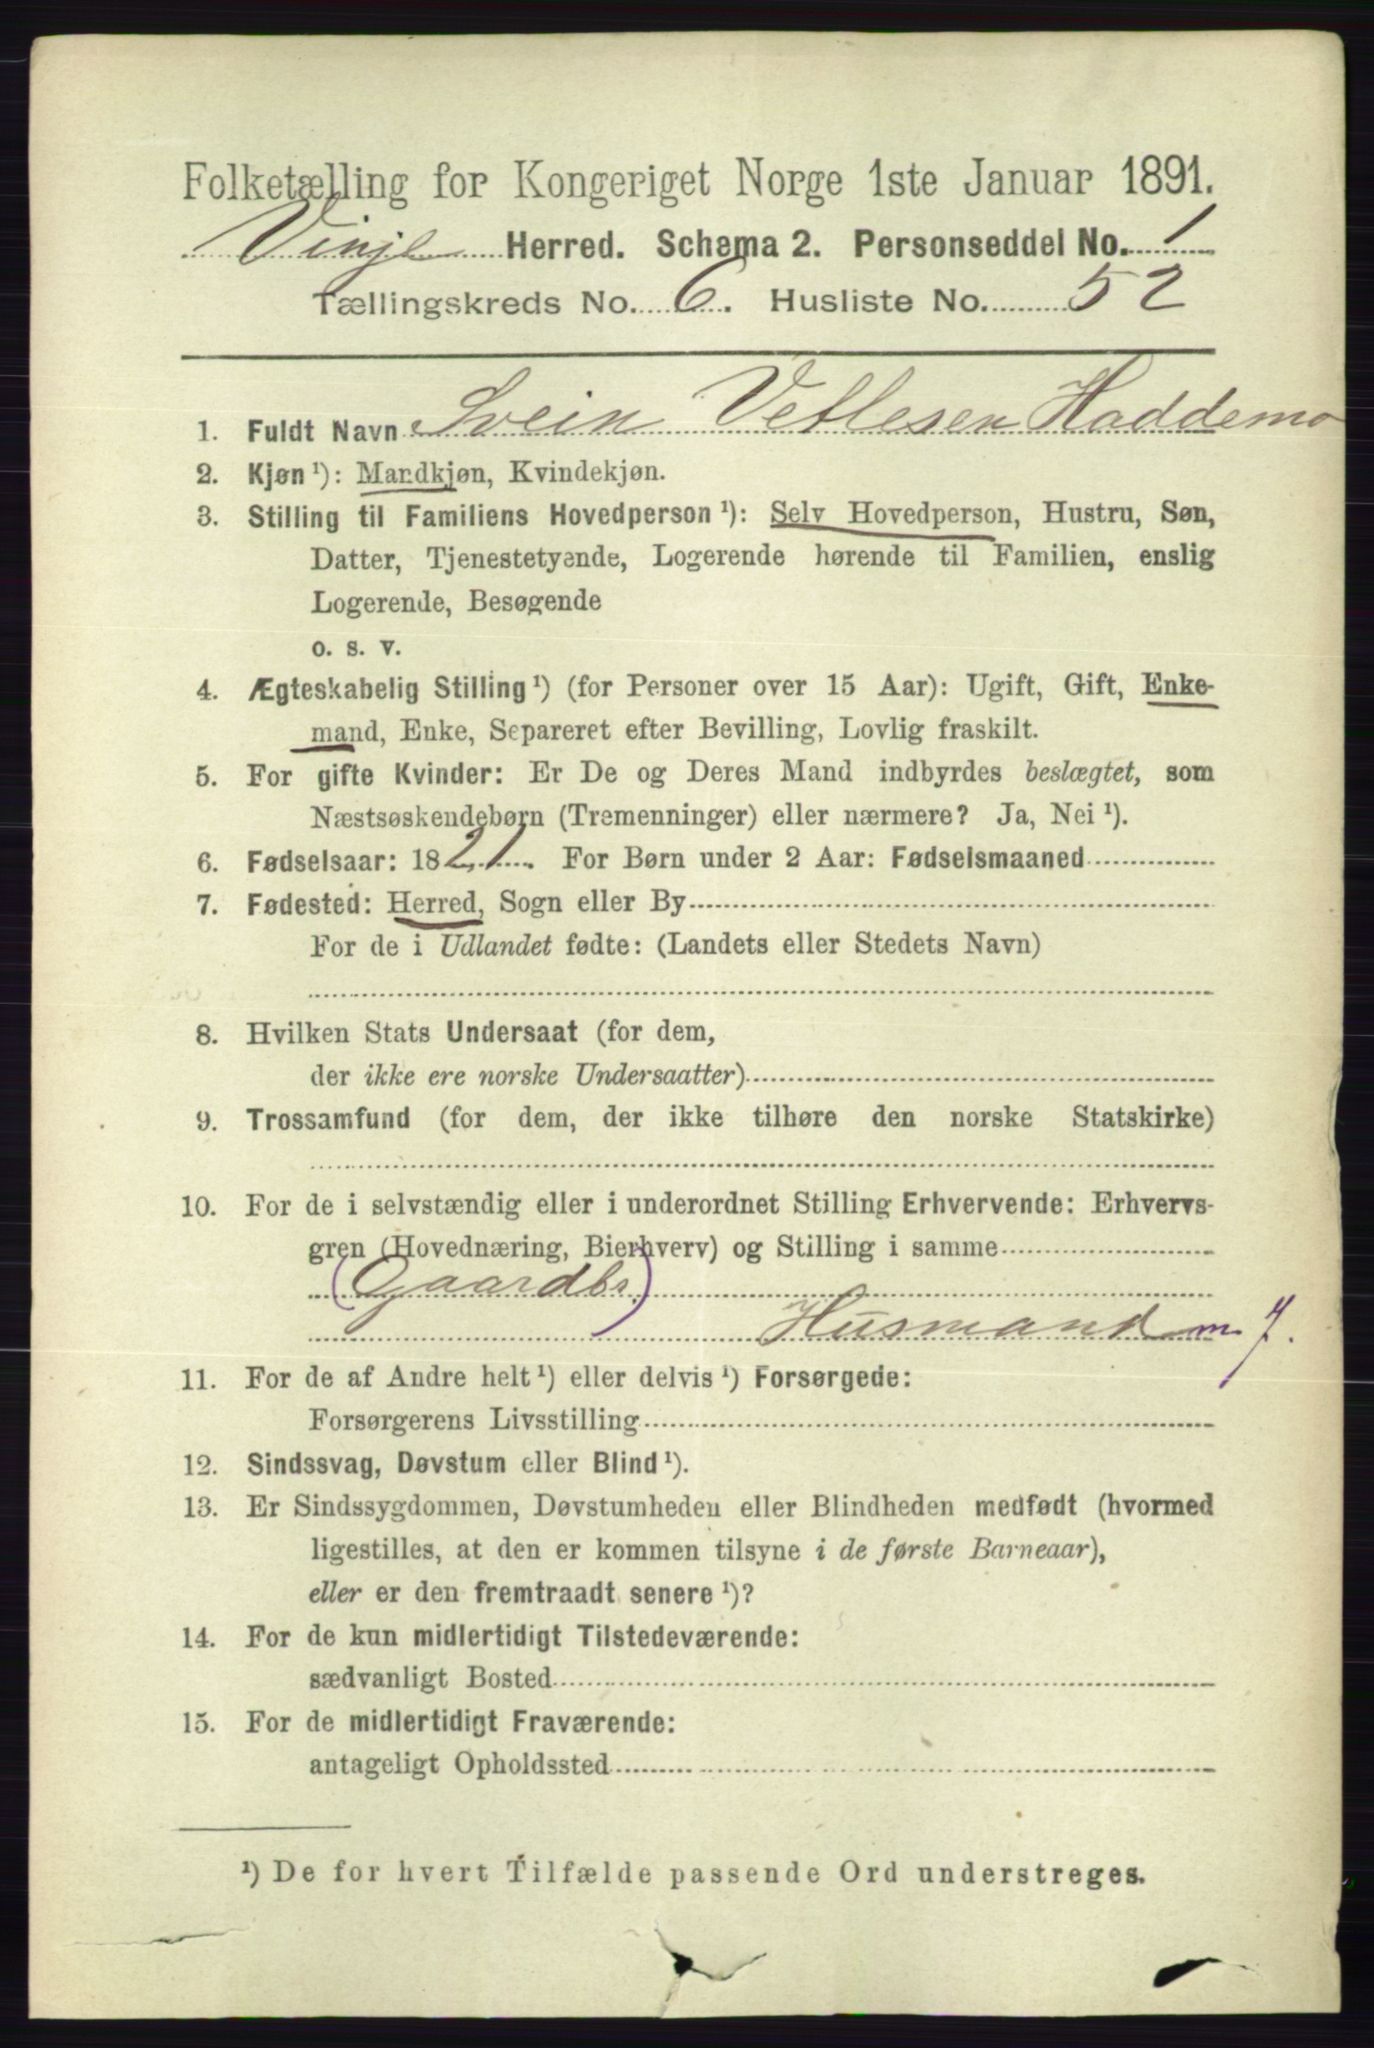 Folketælling for Kongeriget Norge 1ste Januar 1891.
Vinje Herred. Schema 2. Personseddel No. 1
Tællingskreds No. 6. Husliste No. 52
1. Fuldt Navn Svein Vetlesen Haddemo
2. Kjøn ¹): Mandkjøn, Kvindekjøn.
3. Stilling til Familiens Hovedperson ¹): Selv Hovedperson, Hustru, Søn,
Datter, Tjenestetyende, Logerende hørende til Familien, enslig
Logerende, Besøgende
o. s. v.
4. Ægteskabelig Stilling ¹) (for Personer over 15 Aar): Ugift, Gift, Enke-
mand, Enke, Separeret efter Bevilling, Lovlig fraskilt.
5. For gifte Kvinder: Er De og Deres Mand indbyrdes beslægtet, som
Næstsøskendebørn (Tremenninger) eller nærmere? Ja, Nei ¹).
6. Fødselsaar: 1821. For Børn under 2 Aar: Fødselsmaaned
7. Fødested: Herred, Sogn eller By
For de i Udlandet fødte: (Landets eller Stedets Navn)
8. Hvilken Stats Undersaat (for dem,
der ikke ere norske Undersaatter)
9. Trossamfund (for dem, der ikke tilhøre den norske Statskirke)
10. For de i selvstændig eller i underordnet Stilling Erhvervende: Erhvervs-
gren (Hovednæring, Bierhverv) og Stilling i samme
(Gaardbr.)
Husmand m. j.
11. For de af Andre helt ¹) eller delvis ¹) Forsørgede:
Forsørgerens Livsstilling
12. Sindssvag, Døvstum eller Blind ¹).
13. Er Sindssygdommen, Døvstumheden eller Blindheden medfødt (hvormed
ligestilles, at den er kommen tilsyne i de første Barneaar),
eller er den fremtraadt senere ¹)?
14. For de kun midlertidigt Tilstedeværende:
sædvanligt Bosted
15. For de midlertidigt Fraværende:
antageligt Opholdssted
¹) De for hvert Tilfælde passende Ord understreges.